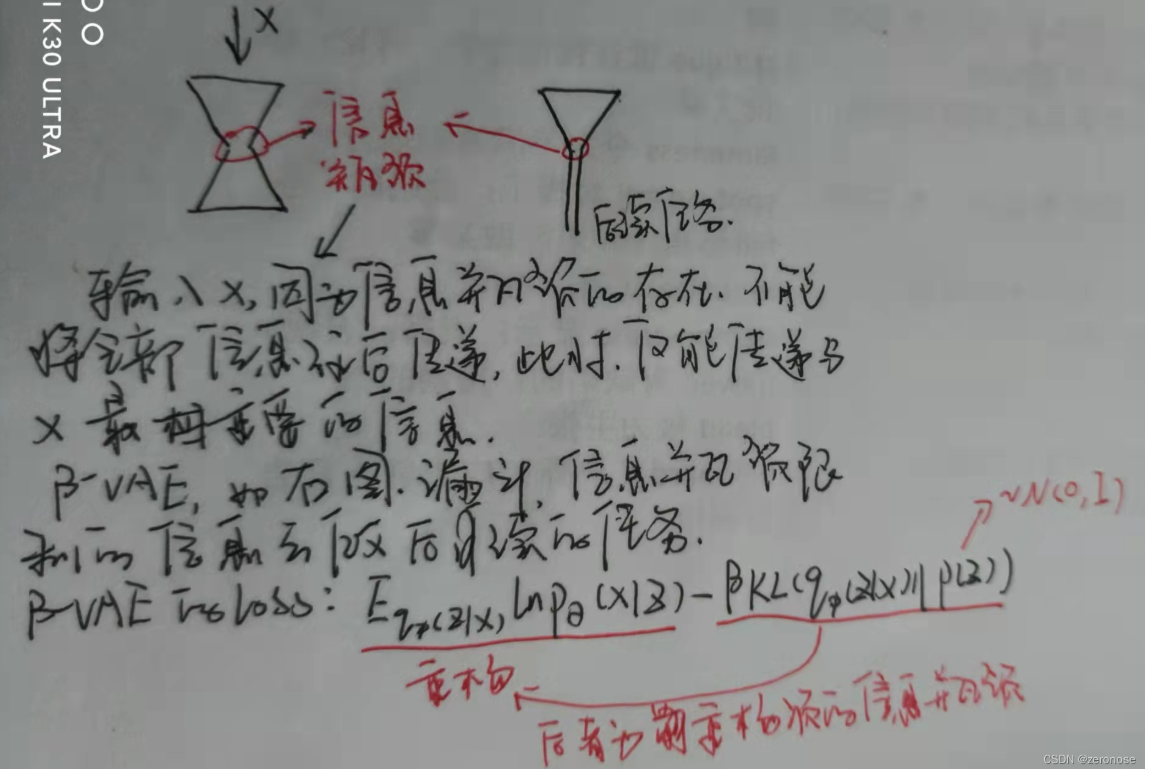 OO
I K30 ULTRA
X
信息
瓶颈
后续任务.
输入X,因为信息瓶颈的存在.不能
将全部信息向后传递,此时.仅能传递与
X最相重要的信息.
β-VAE,如右图.漏斗,信息瓶颈限
制的信息后续的任务.
β-VAE的loss: E_{qφ(z|x)} ln p_θ(x|z) - βKL(qφ(z|x)||p(z))
~N(0,I)
重构
后者为重构项的信息瓶颈
CSDN @zeronose